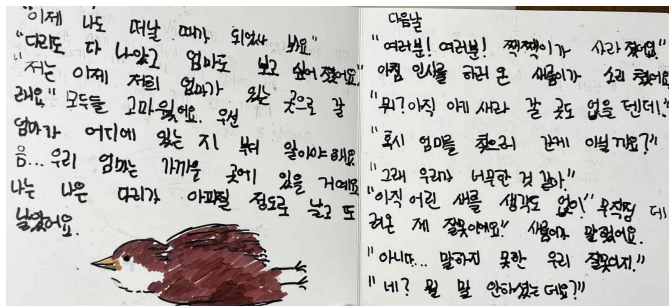 "이제 나도 떠날 때가 되었나 봐요."
"다리도 다 나았고 엄마도 보고 싶어졌어요"
"저는 이제 저희 엄마가 있는 곳으로 갈
래요." 모두들 고마웠어요. 우선
엄마가 어디에 있는 지 부터 알아야해요.
음... 우리 엄마는 가까운 곳에 있을 거예요
나는 나은 다리가 아파질 정도로 날고 또
날았어요.
다음날
"여러분! 여러분! 짹짹이가 사라졌어요."
아침 인사를 하러 온 새롬이가 소리 쳤어요
"뭐? 아직 아기 새라 갈 곳도 없을 텐데!"
"혹시 엄마를 찾으러 간게 아닐까요?"
"그래 우리가 너무한 것 같아."
"아직 어린 새를 생각도 없이" 무작정 데
려온 제 잘못이에요" 새롬이가 말했어요.
"아니다... 말하지 못한 우리 잘못이지."
"네? 뭘 말 안하셨는데요?"